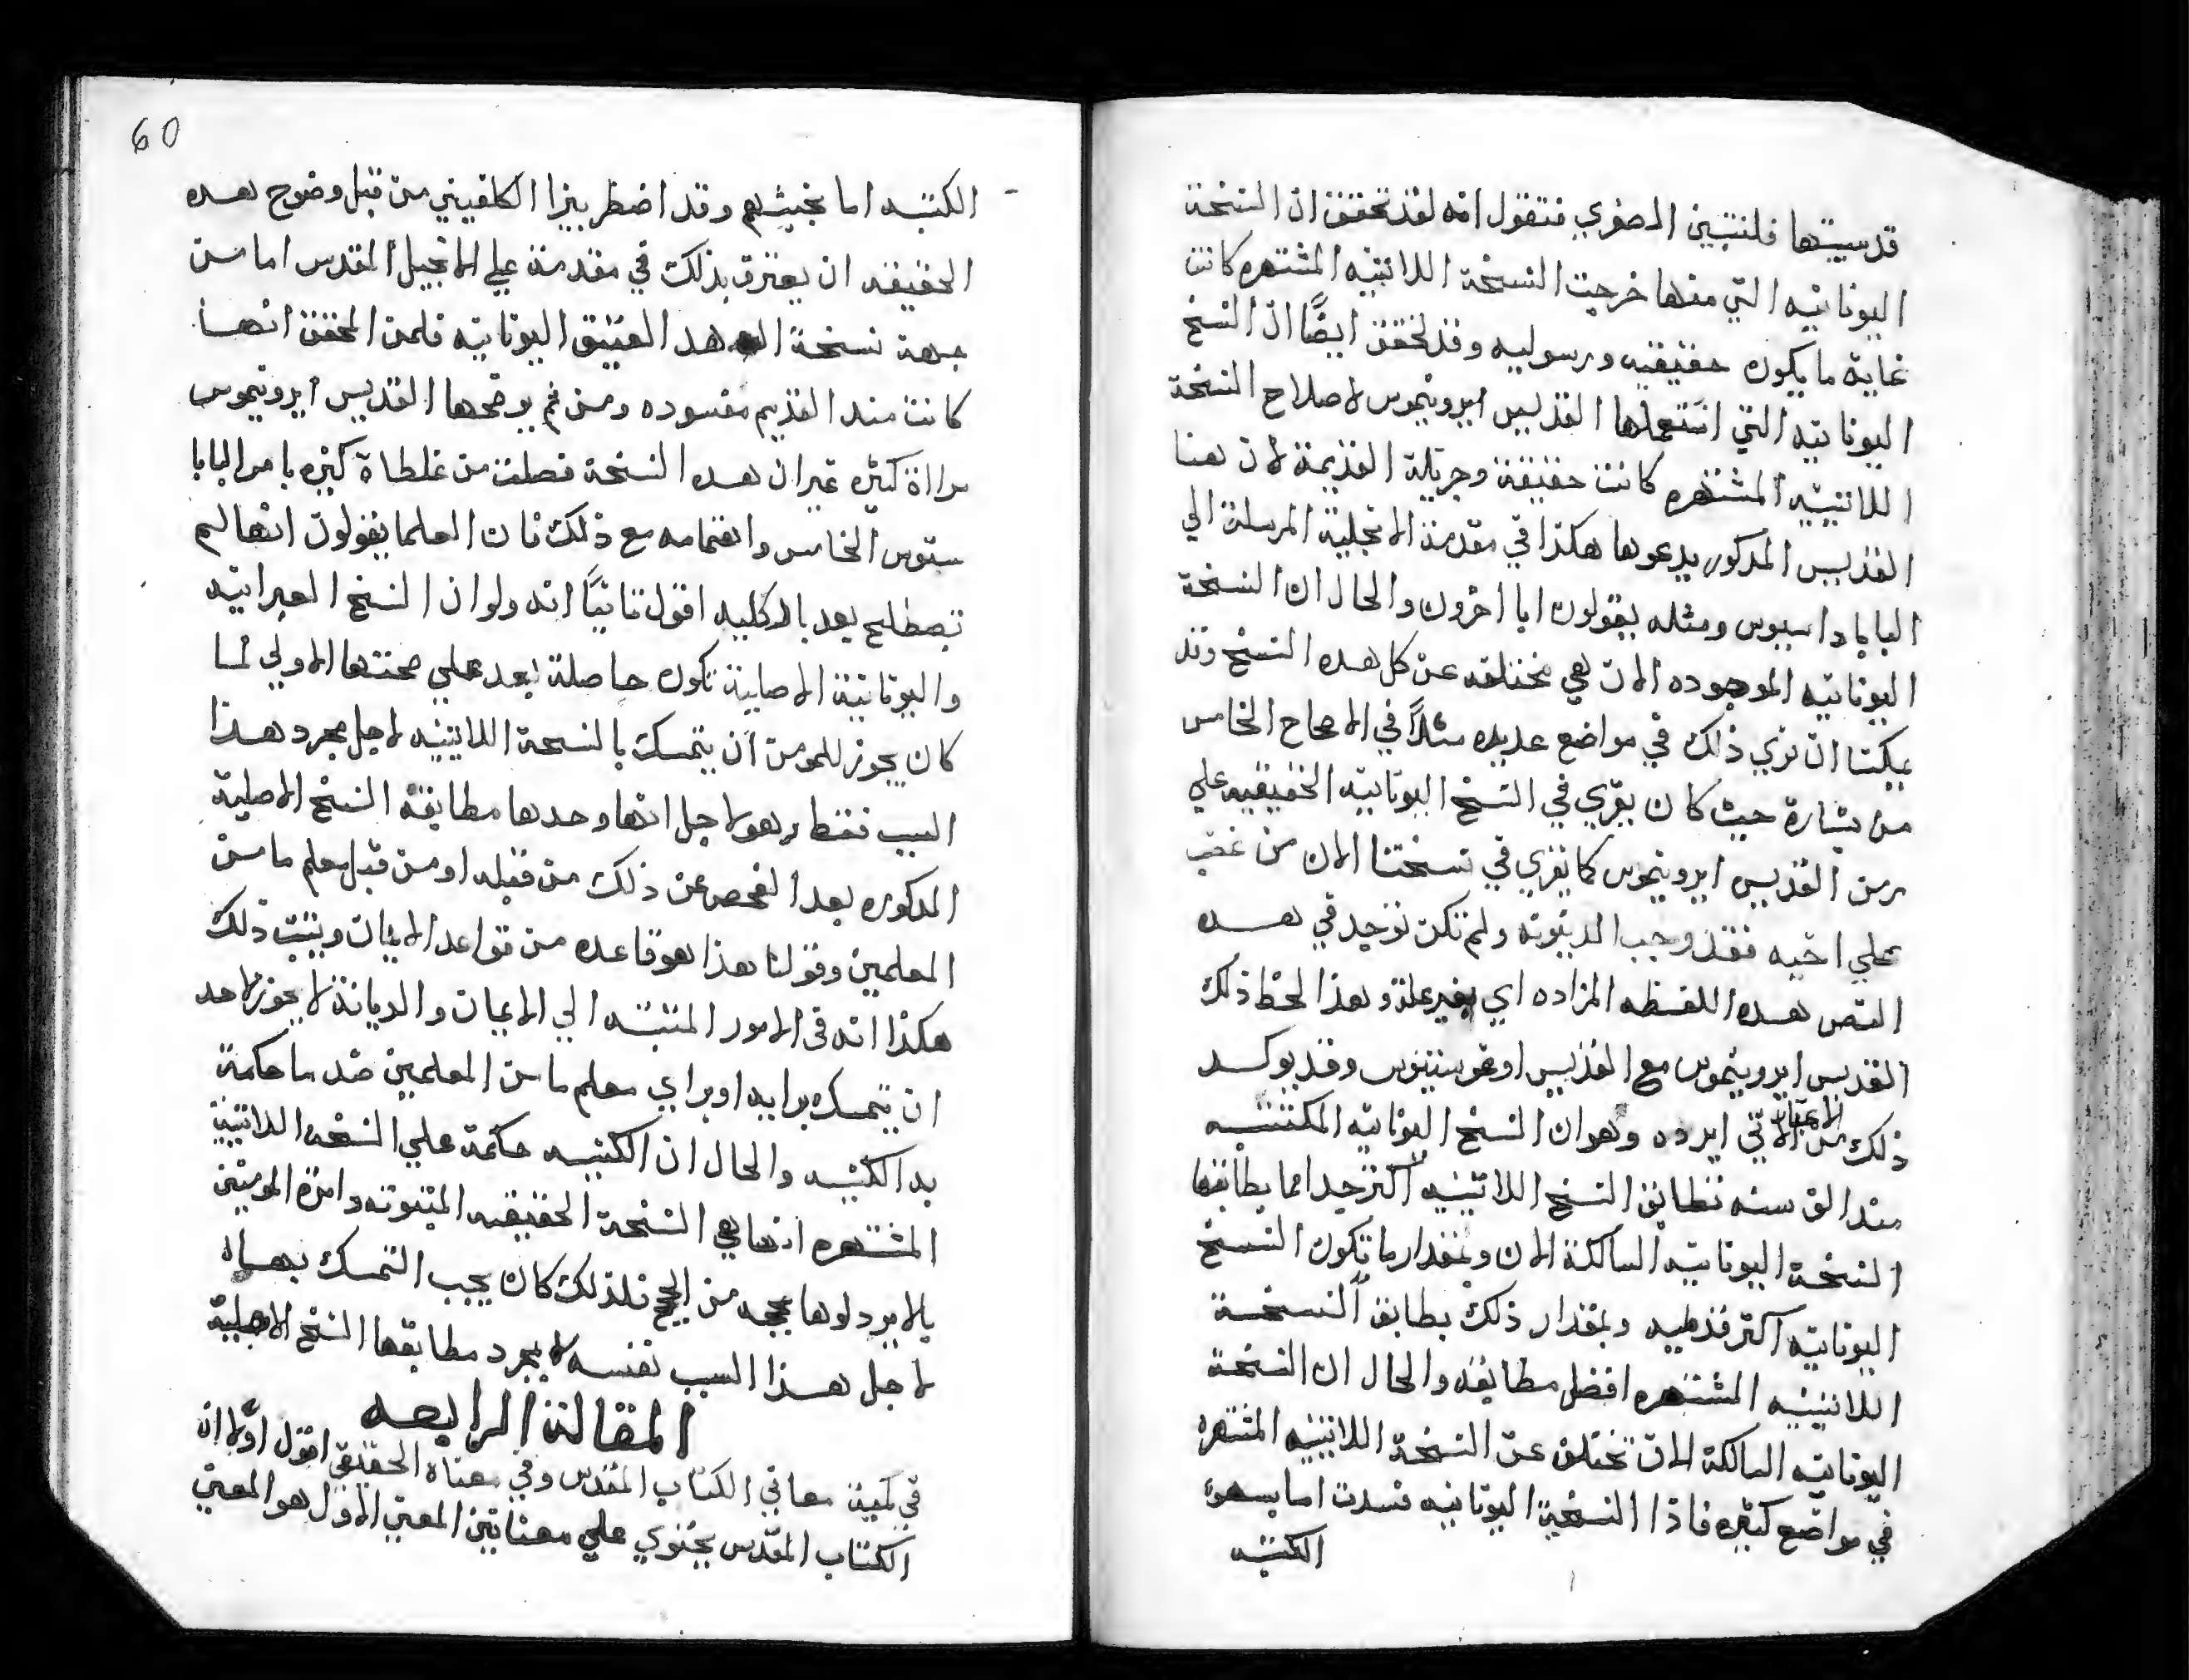 قدسيتها فلنتبين الصغري فتقول انه لقد تحقق ان النسخة
اليونانيه التي منها خرجت النسخة اللاتينيه المشتهره كانت
غاية ما يكون حقيقيه ورسوليه وقد تحقق ايضًا ان النسخ
اليونانيه التي استعملها القديس ايرونيموس لاصلاح النسخة
اللاتينيه المشتهره كانت حقيقة وجزيلة القديمة لان هنا
القديس المذكور يدعوها هكذا في مقدمة الانجلية المرسلة الي
البابا داسيوس ومثله يقولون ابا اخرون والحال ان النسخة
اليونانيه الموجوده الان هي مختلفه عن كل هده النسخ وقد
يمكننا ان نري ذلك في مواضع عديده مثلاً في الاصحاح الخامس
من بشارة حيث كان يقري في النسخ اليونانيه الحقيقيه علي
زمن القديس ايرونيموس كما يقري في نسختنا الان من غضب
علي اخيه فقد وجب الدينونه ولم تكن توجد في هسده
النص هده اللفظه المزاده اي بغير علة وهذا لحظ ذلك
القديس ايرونيموس مع القديس اوغوستينوس وقد يوكسد
ذلك من الاعتبار الاتي ايرده وهو ان النسخ اليونانيه المكتتبه
مند الف سنه تطابق النسخ اللاتينيه اكثر جدا مما يطابقها
النسخة اليونانيه السالكة الان وبمقدار ما تكون النسخ
اليونانيه اكتر قدميه وبمقدار ذلك يطابق النسخة
اللاتينيه المشتهره افضل مطابقه والحال ان النسخة
اليونانيه السالكة الان تختلف عن النسخة اللاتينيه المشتهره
في مواضع كثيره فاذا النسخة اليونانيه فسدت اما بسهو
الكتبه
60
الكتبه اما بخبثهم وقد اضطر بيزا الكلفيني من قبل وضوح هده
الحقيقه ان يعترف بذلك في مقدمة علي الانجيل المقدس اما من
جهة نسخة العهد العتيق اليونانيه فلمن المحقق انها
كانت مند القديم مفسوده ومن ثم يوضحها القديس ايرونيموس
مراة كثيره غير ان هده النسخة فصلت من غلطاة كثيره بامر البابا
ستوس الخامس واهتمامه مع ذلك فان العلما يقولون انها لم
تصطلح بعد بالكليه اقول ثانيًا انه ولو ان النسخ العبرانيه
واليونانية الاصلية تكون حاصلة بعد علي صحتها الاولي لما
كان يجوز للمومن ان يتمسك بالنسخة اللاتينيه لاجل مجرد هذا
السبب فقط وهو لاجل انها وحدها مطابقة النسخ الاصلية
المدكوره بعد الفحص عن ذلك من قبله او من قبل معلم ما من
المعلمين وقولنا هذا هو قاعده من قواعد الايمان ويثبت ذلك
هكذا انه في الامور المنتسبه الي الايمان والديانة لا يجوز لاحد
ان يتمسك برايه او براي معلم ما من المعلمين ضد ما حكمة
به الكنيسه والحال ان الكنيسه حكمة علي النسخه اللاتينية
المشتهره انها هي النسخة الحقيقيه المثبوته وامرة المومنين
بالا يردلوها بحجه من الحجج فلذلك كان يجب التمسك بهسا
لاجل هسذا السبب نفسه لا بمجرد مطابقها النسخ الاصلية
المقالة الرابعه
في كمية معاني الكتاب المقدس وفي معناه الحقيقي اقول اولا ان
الكتاب المقدس يحتوي علي معنايين المعني الاول هو المعني